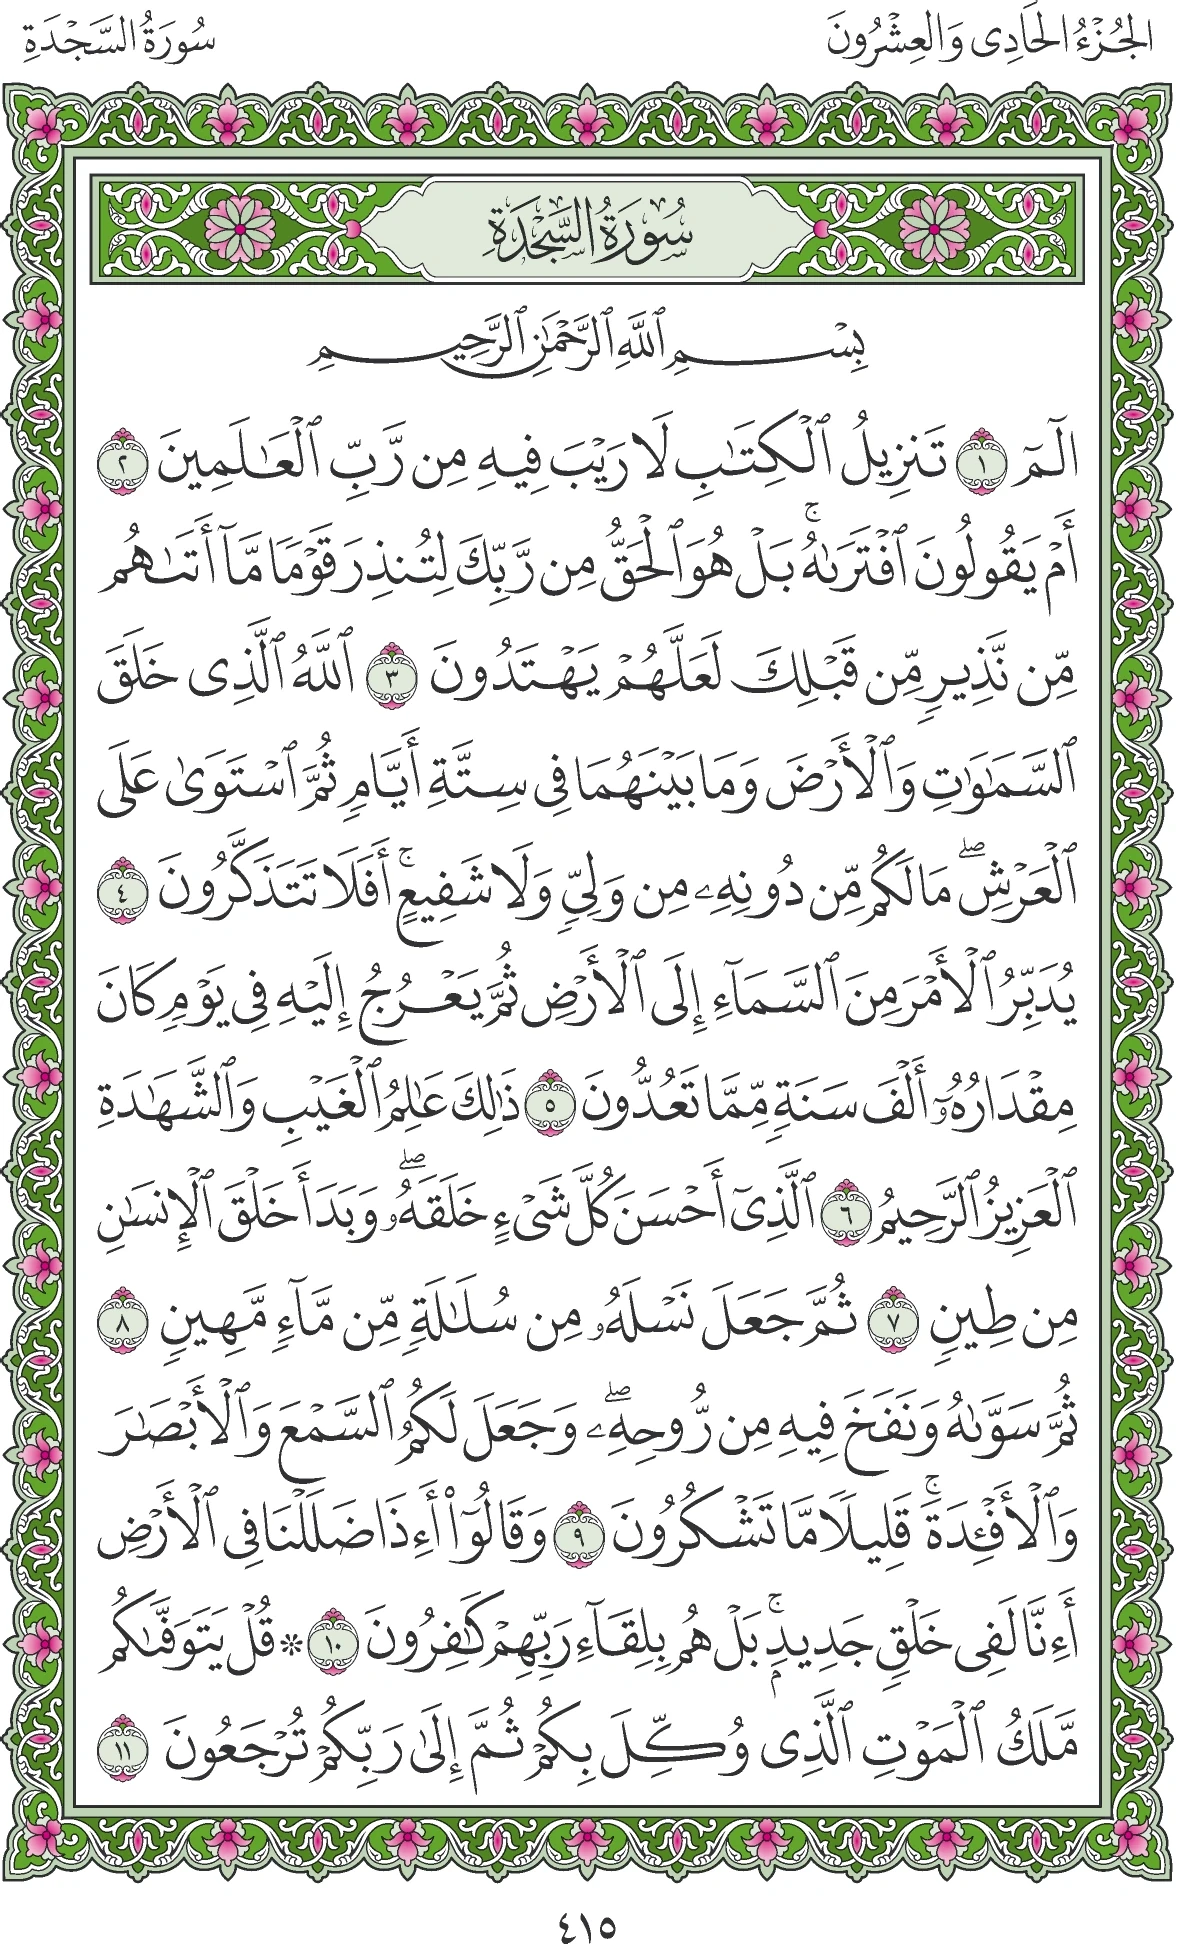 الجُزْءُ الحَادِي وَالعِشْرُونَ
سُورَةُ السَّجْدَةِ
سُورَةُ السَّجْدَةِ
بِسْمِ ٱللَّهِ ٱلرَّحْمَٰنِ ٱلرَّحِيمِ
الٓمٓ ١ تَنزِيلُ ٱلْكِتَٰبِ لَا رَيْبَ فِيهِ مِن رَّبِّ ٱلْعَٰلَمِينَ ٢
أَمْ يَقُولُونَ ٱفْتَرَىٰهُۚ بَلْ هُوَ ٱلْحَقُّ مِن رَّبِّكَ لِتُنذِرَ قَوْمًا مَّآ أَتَىٰهُم
مِّن نَّذِيرٍ مِّن قَبْلِكَ لَعَلَّهُمْ يَهْتَدُونَ ٣ ٱللَّهُ ٱلَّذِى خَلَقَ
ٱلسَّمَٰوَٰتِ وَٱلْأَرْضَ وَمَا بَيْنَهُمَا فِى سِتَّةِ أَيَّامٍ ثُمَّ ٱسْتَوَىٰ عَلَى
ٱلْعَرْشِۖ مَا لَكُم مِّن دُونِهِۦ مِن وَلِىٍّ وَلَا شَفِيعٍۚ أَفَلَا تَتَذَكَّرُونَ ٤
يُدَبِّرُ ٱلْأَمْرَ مِنَ ٱلسَّمَآءِ إِلَى ٱلْأَرْضِ ثُمَّ يَعْرُجُ إِلَيْهِ فِى يَوْمٍ كَانَ
مِقْدَارُهُۥٓ أَلْفَ سَنَةٍ مِّمَّا تَعُدُّونَ ٥ ذَٰلِكَ عَٰلِمُ ٱلْغَيْبِ وَٱلشَّهَٰدَةِ
ٱلْعَزِيزُ ٱلرَّحِيمُ ٦ ٱلَّذِىٓ أَحْسَنَ كُلَّ شَىْءٍ خَلَقَهُۥۖ وَبَدَأَ خَلْقَ ٱلْإِنسَٰنِ
مِن طِينٍ ٧ ثُمَّ جَعَلَ نَسْلَهُۥ مِن سُلَٰلَةٍ مِّن مَّآءٍ مَّهِينٍ ٨
ثُمَّ سَوَّىٰهُ وَنَفَخَ فِيهِ مِن رُّوحِهِۦۖ وَجَعَلَ لَكُمُ ٱلسَّمْعَ وَٱلْأَبْصَٰرَ
وَٱلْأَفْـِٔدَةَۚ قَلِيلًا مَّا تَشْكُرُونَ ٩ وَقَالُوٓا۟ أَءِذَا ضَلَلْنَا فِى ٱلْأَرْضِ
أَءِنَّا لَفِى خَلْقٍ جَدِيدٍۭۚ بَلْ هُم بِلِقَآءِ رَبِّهِمْ كَٰفِرُونَ ١٠ * قُلْ يَتَوَفَّىٰكُم
مَّلَكُ ٱلْمَوْتِ ٱلَّذِى وُكِّلَ بِكُمْ ثُمَّ إِلَىٰ رَبِّكُمْ تُرْجَعُونَ ١١
٤١٥